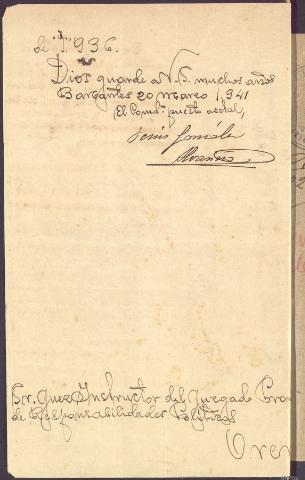 de 1.936.
Dios guarde a V.S. muchos años
Barbantes 20 Marzo 1.941
El Comdte. puesto acctal,
Jesús González
Sr. Juez Instructor del Juzgado Prov
de Responsabilidades Políticas
Oren